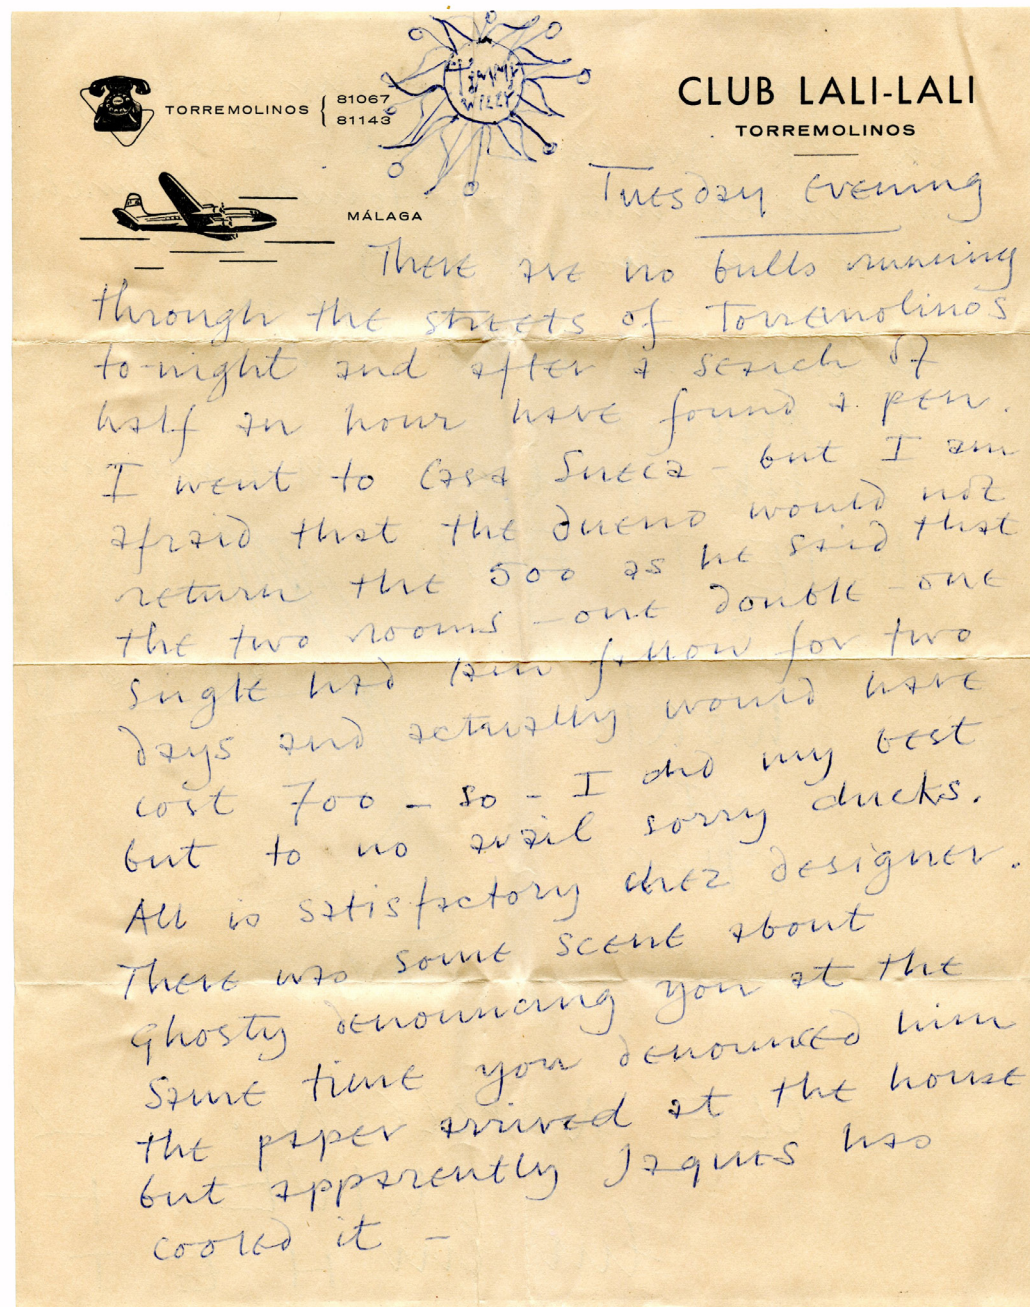 TORREMOLINOS { 81067
81143
CLUB LALI-LALI
TORREMOLINOS
MÁLAGA
WILLY
Tuesday Evening
There are no bulls running
through the streets of Torremolinos
to-night and after a search of
half an hour have found a pen.
I went to Casa Sueca - but I am
afraid that the dueno would not
return the 500 as he said that
the two rooms - one double - one
single had lain fallow for two
days and actually would have
cost 700 - so - I did my best
but to no avail sorry ducks.
All is satisfactory chez designer.
There was some scene about
Ghosty denouncing you at the
same time you denounced him
the paper arrived at the house
but apparently Jaques has
cooled it -